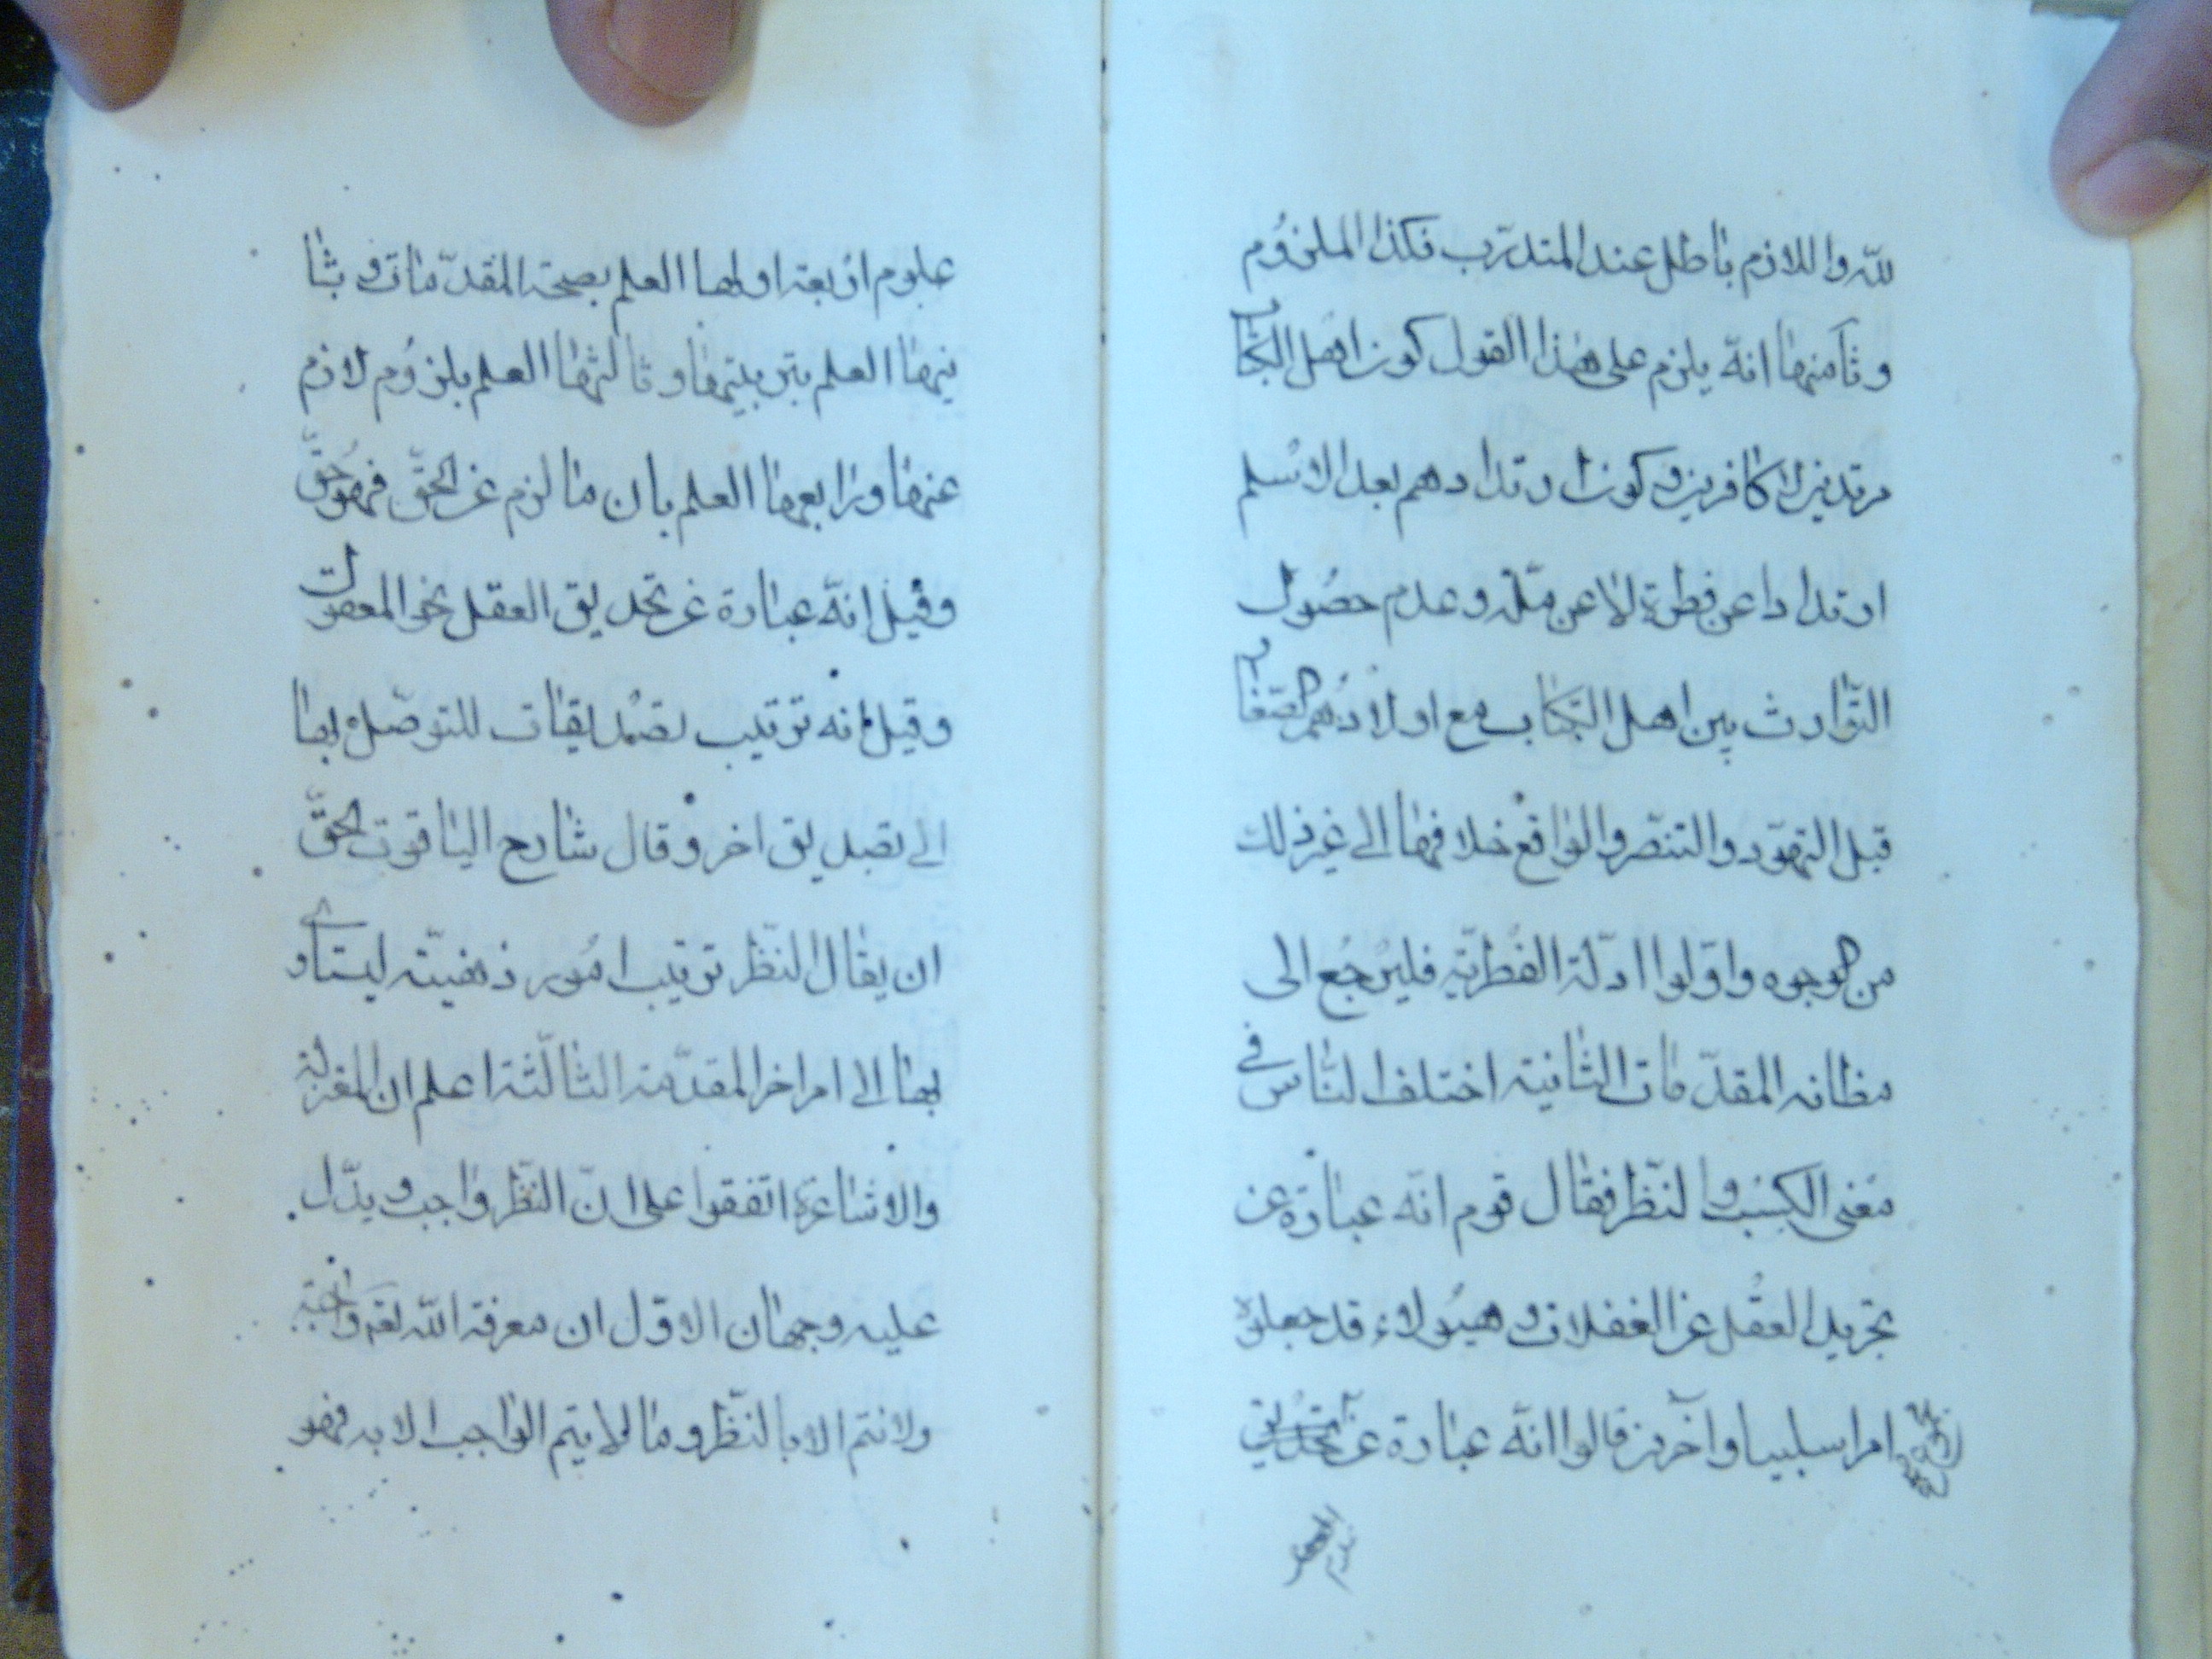 لله واللازم باطل عند المتدرّب فكذا الملزوم
وثامنها انّه يلزم على هذا القول كون اهل الكتاب
مرتدين لا كافرين وكون ارتدادهم بعد الاسلم
ارتدادا عن فطرة لا عن ملّة وعدم حصول
التّوارث بين اهل الكتاب مع اولادهم
قبل التهوّد والتنصّر والواقع خلافها الى غير ذلك
من الوجوه واوّلوا ادلّة الفطريّة فليرجع الى
مظانه المقدّمات الثانية اختلف النّاس في
معنى الكسب والنّظر فقال قوم انّه عبارة عن
تجريد العقل عن الغفلات وهيؤلاء قد جعلوه
امرا سلبيا وآخرين قالوا انّه عبارة عن
علوم اربعة اولها العلم بصحة المقدّمات وثا
نيها العلم بترتيبها وثالثها العلم بلزوم لازم
عنها ورابعها العلم بان ما لزم عن الحقّ فهو حقّ
وقيل انّه عبارة عن تحديق العقل نحو المعقولات
وقيل انه ترتيب تصديقات للتوصّل بها
الى تصديق اخر وقال شارح الياقوت الحقّ
ان يقال النّظر ترتيب امور ذهنيّة ليتأدى
بها الى امر اخر المقدّمة الثالثة اعلم ان المعتزلة
والاشاعرة اتفقوا على انّ النّظر واجب ويدّل
عليه وجهان الاوّل ان معرفة الله تعه واجبة
ولا تتم الا بالنّظر وما لا يتم الواجب الا به فهو